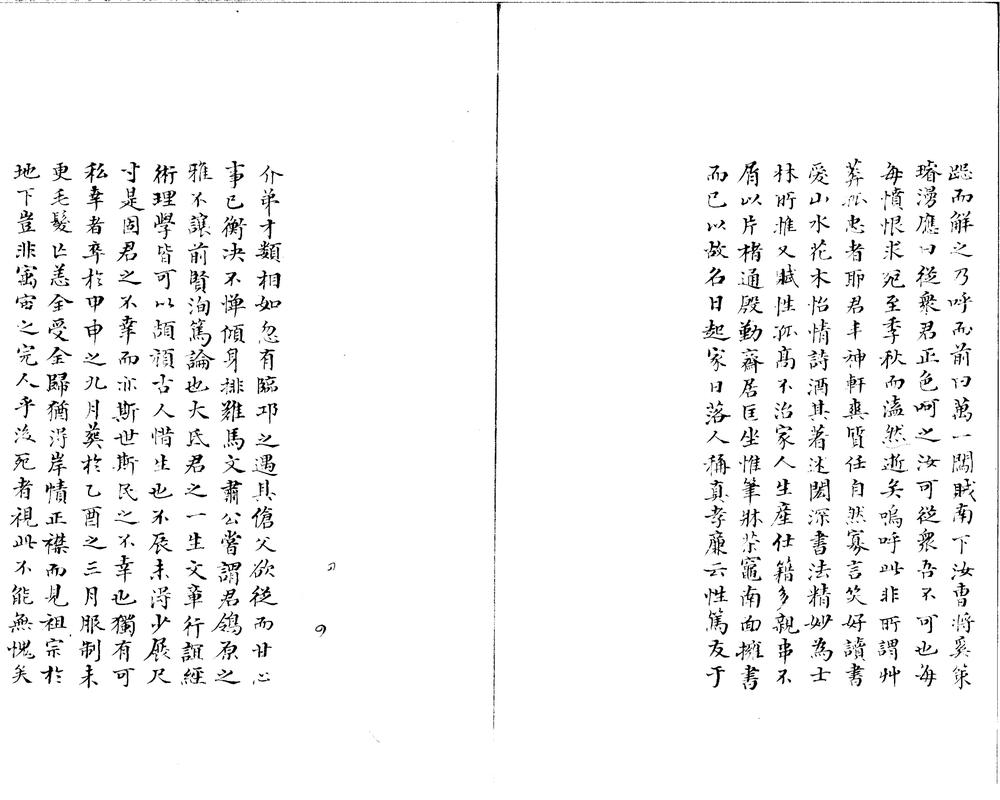 跽而解之乃呼而前曰萬一闖賊南下汝曹將奚策
璿漫應曰從衆君正色呵之汝可從衆吾不可也每
每憤恨求死至季秋而溘然逝矣嗚呼此非所謂艸
莽孤忠者耶君丰神軒爽質任自然寡言笑好讀書
愛山水花木怡情詩酒其著述閎深書法精妙為士
林所推又賦性孤高不治家人生產仕籍多親串不
屑以片楮通殷勤齋居匡坐惟筆牀茶竈南面擁書
而已以故名日起家日落人稱真孝廉云性篤友于
介弟才類相如忽有臨邛之遇其傖父欲從而甘心
事已衡決不憚傾身排難馬文肅公嘗謂君鴒原之
雅不讓前賢洵篤論也大氐君之一生文章行誼經
術理學皆可以頡頏古人惜生也不辰未得少展尺
寸是固君之不幸而亦斯世斯民之不幸也獨有可
私幸者卒於甲申之九月葬於乙酉之三月服制未
更毛髮亡恙全受全歸猶得岸幘正襟而見祖宗於
地下豈非窀穸之完人乎後死者視此不能無愧矣